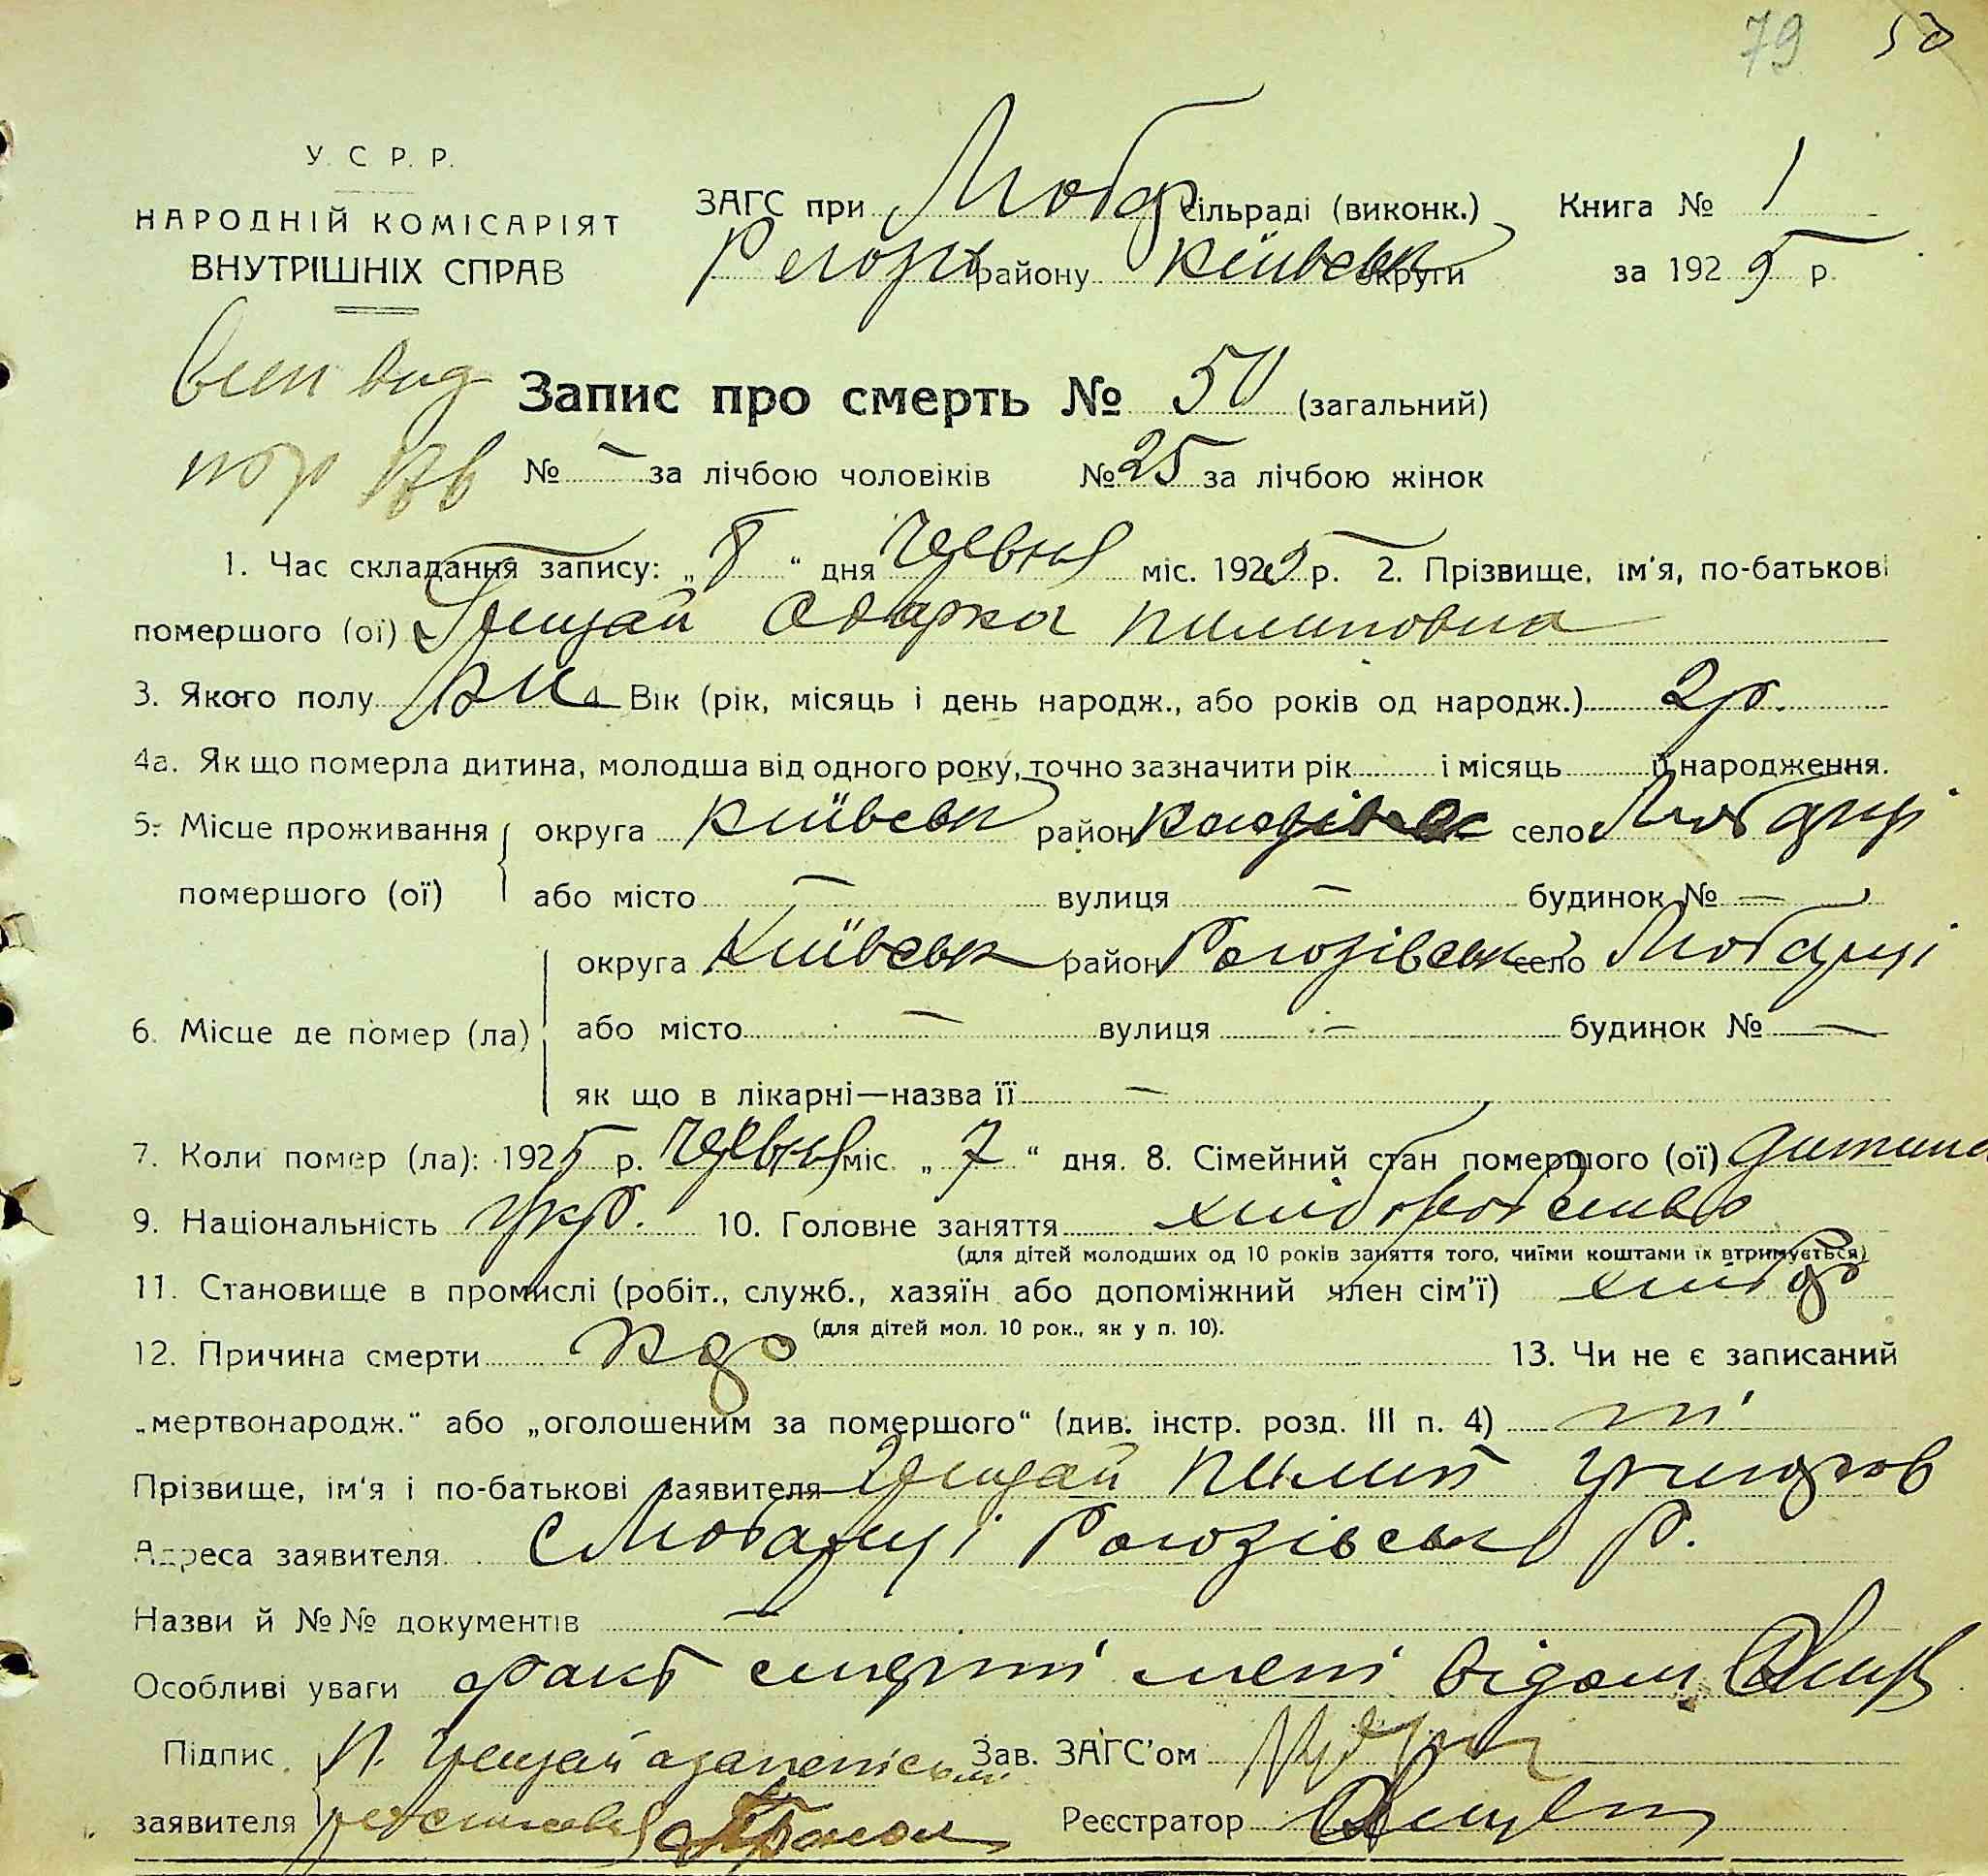 79 50
У. С. Р. Р.
НАРОДНІЙ КОМІСАРІЯТ
ВНУТРІШНІХ СПРАВ
ЗАГС при Любар сільраді (виконк.) Книга № 1
Рогозів району Київськ округи за 1925 р.
Запис про смерть № 50 (загальний)
№ — за лічбою чоловіків № 25 за лічбою жінок
1. Час складання запису: „8“ дня Червня міс. 1925 р. 2. Прізвище, ім'я, по-батькові
помершого (ої) Грицай Одарка Пилиповна
3. Якого полу жін 4. Вік (рік, місяць і день народж., або років од народж.) 2 р.
4а. Як що померла дитина, молодша від одного року, точно зазначити рік і місяць її народження.
5. Місце проживання округа Київськ район село Любарці
помершого (ої) або місто — вулиця — будинок № —
округа Київськ район Рогозівськ село Любарці
6. Місце де помер (ла) або місто — вулиця — будинок № —
як що в лікарні—назва її —
7. Коли помер (ла): 1925 р. Червня міс. „7“ дня. 8. Сімейний стан помершого (ої) дитина
9. Національність укр. 10. Головне заняття хліборобство
(для дітей молодших од 10 років заняття того, чиїми коштами їх втримується)
11. Становище в промислі (робіт., служб., хазяїн або допоміжний член сім'ї)
(для дітей мол. 10 рок., як у п. 10).
12. Причина смерти 13. Чи не є записаний
„мертвонародж.“ або „оголошеним за помершого“ (див. інстр. розд. III п. 4) ні
Прізвище, ім'я і по-батькові заявителя Грицай Пилип
Адреса заявителя с Любарці Рогозівськ р.
Назви й №№ документів —
Особливі уваги факт смерті мені відом
Підпис П. Грицай Зав. ЗАГС'ом
заявителя Реєстратор